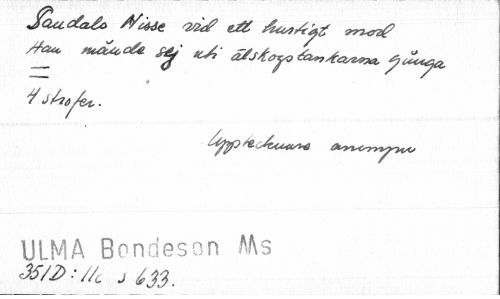 Sandals Nisse vid ett hurtigt mod
Han månde sej uti älskogstankarna gunga
=
4 strofer.
Upptecknare anonym
ULMA Bondeson Ms
351D: 11c s 633.